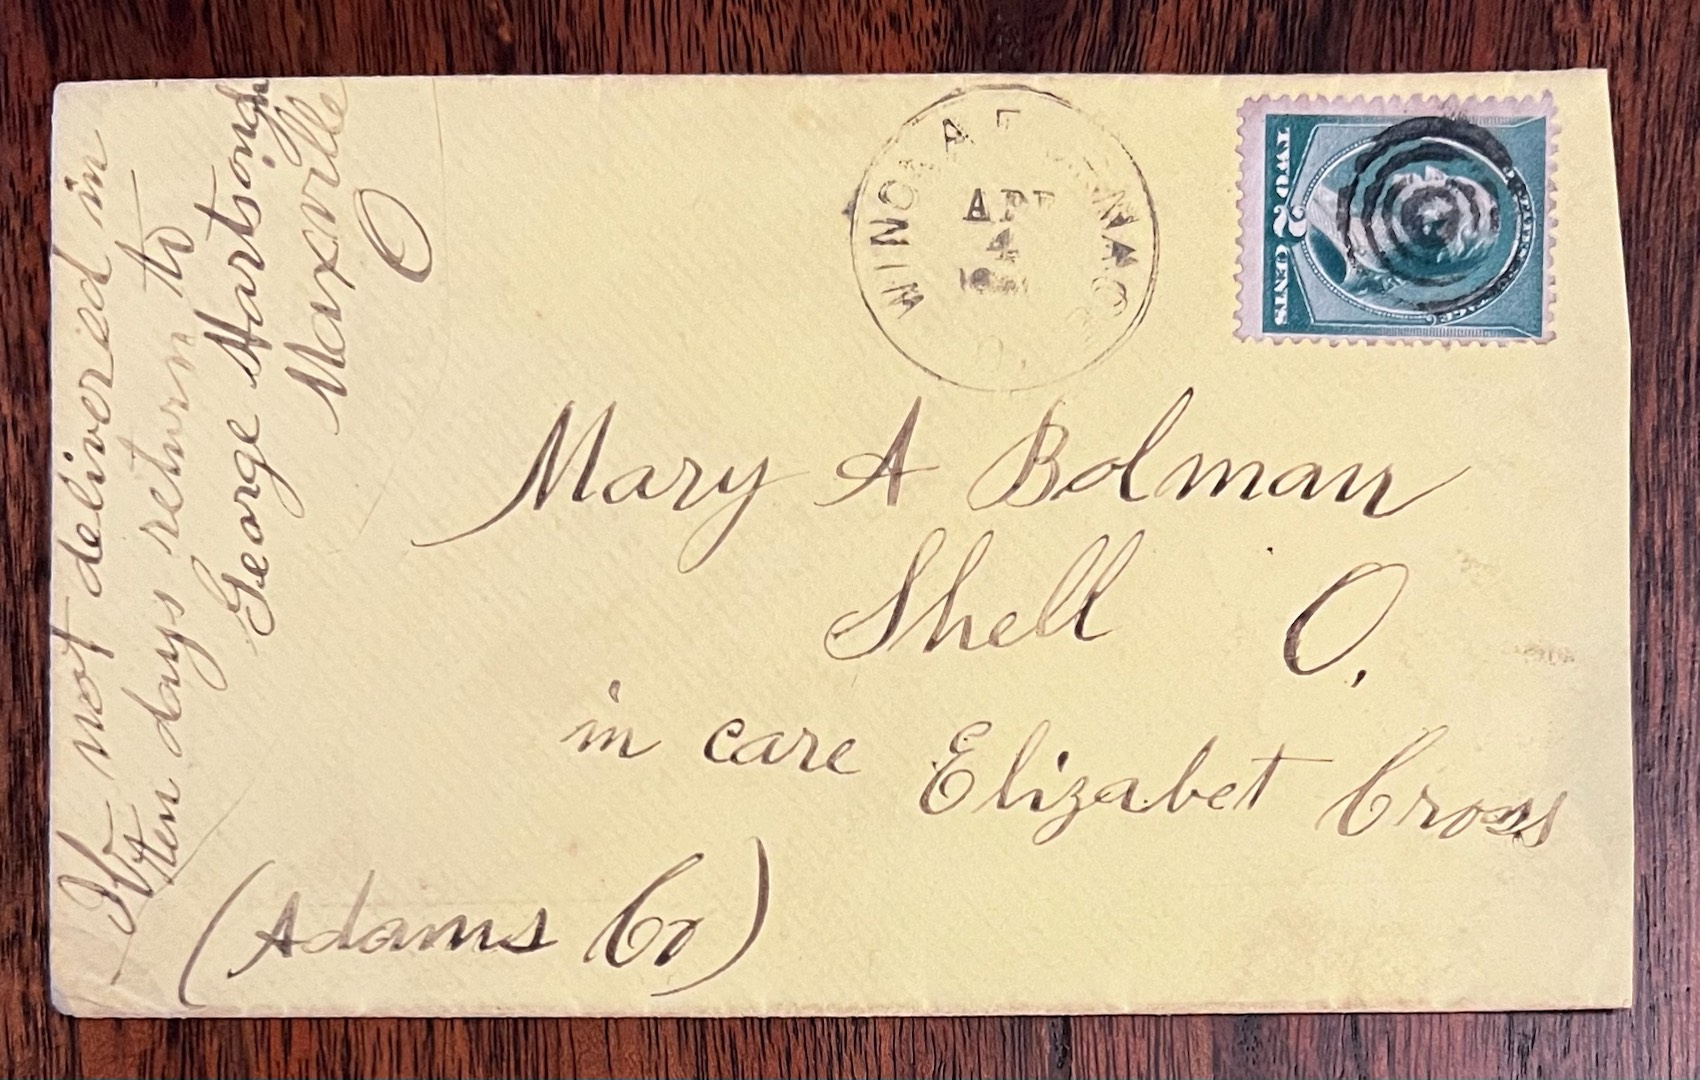 If not delivered in
ten days return to
George Hartsough
Maxville
O
APR
4
TWO 2 CENTS
Mary A Bolman
Shell O.
in care Elizabet Cross
(Adams Co)